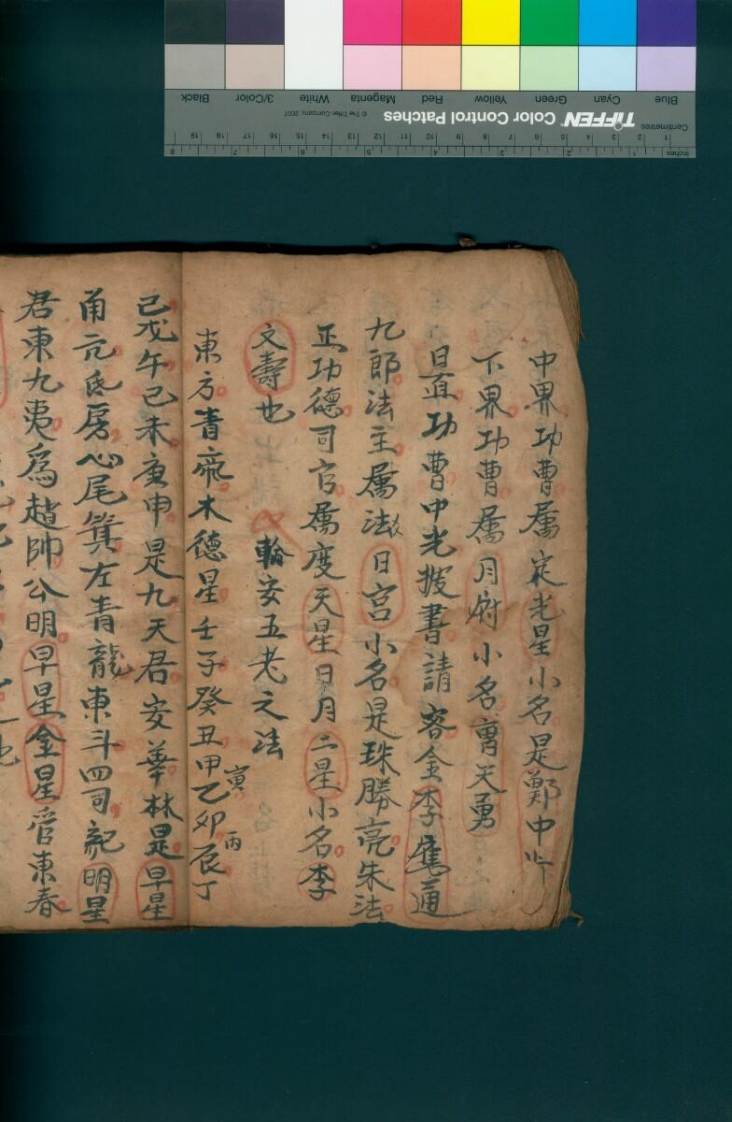 Blue Cyan Green Yellow Red Magenta White 3/Color Black
TIFFEN Color Control Patches © The Tiffen Company, 2007
Centimetres 1 2 3 4 5 6 7 8 9 10 11 12 13 14 15 16 17 18 19
Inches 1 2 3 4 5 6 7 8
中界功曹属定光星小名是鄭中
下界功曹属月府小名曹天勇
日直功曹中光披書請容金李舊通
九郎法主属法日宫小名是珠勝亮朱法
正功德司官属度天星日月二星小名李
文壽也 輪安五老之法
東方青帝木德星壬子癸丑甲寅乙卯丙辰丁
己戊午己未庚申是九天君安華林是早星
角亢氐房心尾箕左青龍東斗四司記明星
君東九夷爲趙帥公明早星金星管東春